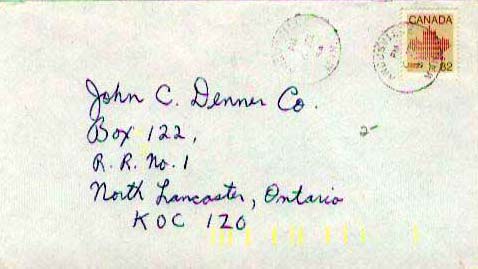 CANADA
32
John C. Denner Co.
Box 122,
R. R. No. 1
North Lancaster, Ontario
K0C 1Z0
2-